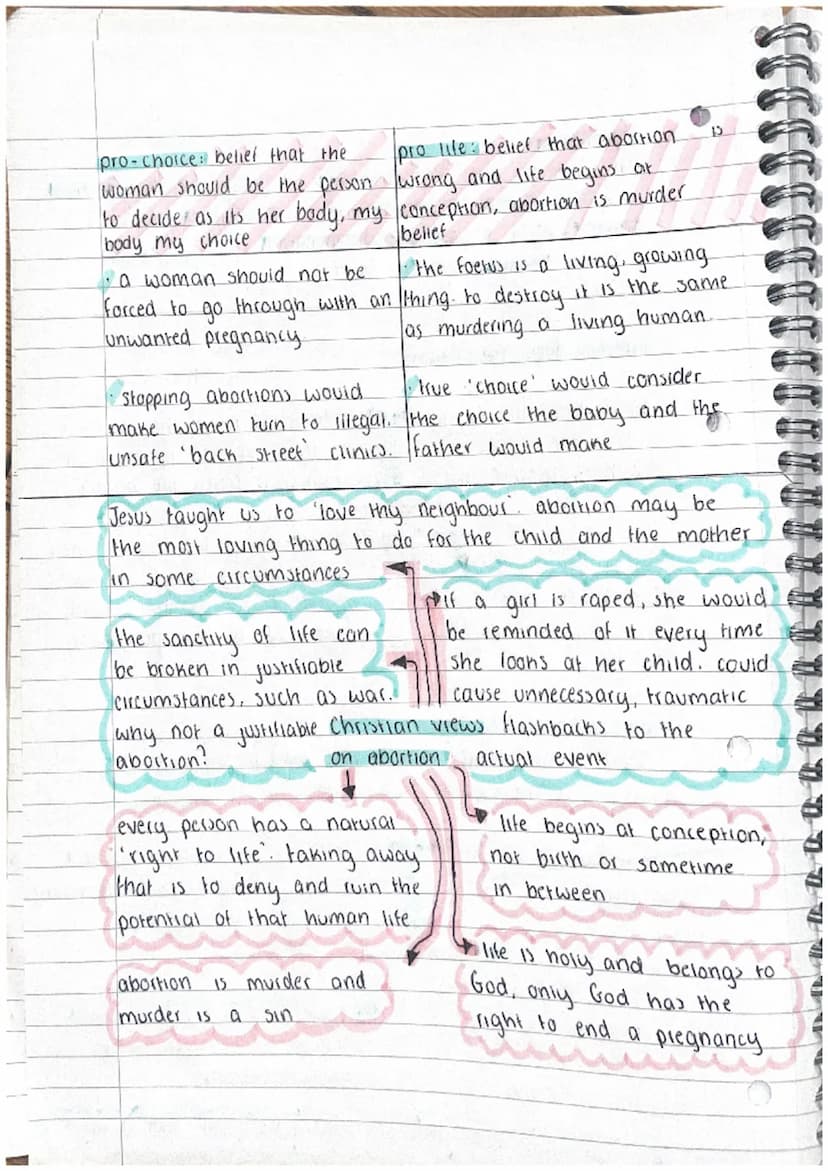 pro-choice: belief that the
woman should be the person
to decide as its her body, my
body my choice
pro life: belief that abortion is
wrong and life begins at
conception, abortion is murder
belief
· a woman should not be
forced to go through with an
unwanted pregnancy
· the foetus is a living, growing
thing. to destroy it is the same
as murdering a living human
· stopping abortions would
make women turn to illegal,
unsafe 'back street' clinics.
· true 'choice' would consider
the choice the baby and the
father would make
Jesus taught us to 'love thy neighbour'. abortion may be
the most loving thing to do for the child and the mother
in some circumstances
the sanctity of life can
be broken in justifiable
circumstances, such as war.
why not a justifiable
abortion?
if a girl is raped, she would
be reminded of it every time
she looks at her child. could
cause unnecessary, traumatic
flashbacks to the
actual event
Christian views
on abortion
every person has a natural
'right to life'. taking away
that is to deny and ruin the
potential of that human life
life begins at conception,
not birth or sometime
in between
abortion is murder and
murder is a sin
life is holy and belongs to
God, only God has the
right to end a pregnancy